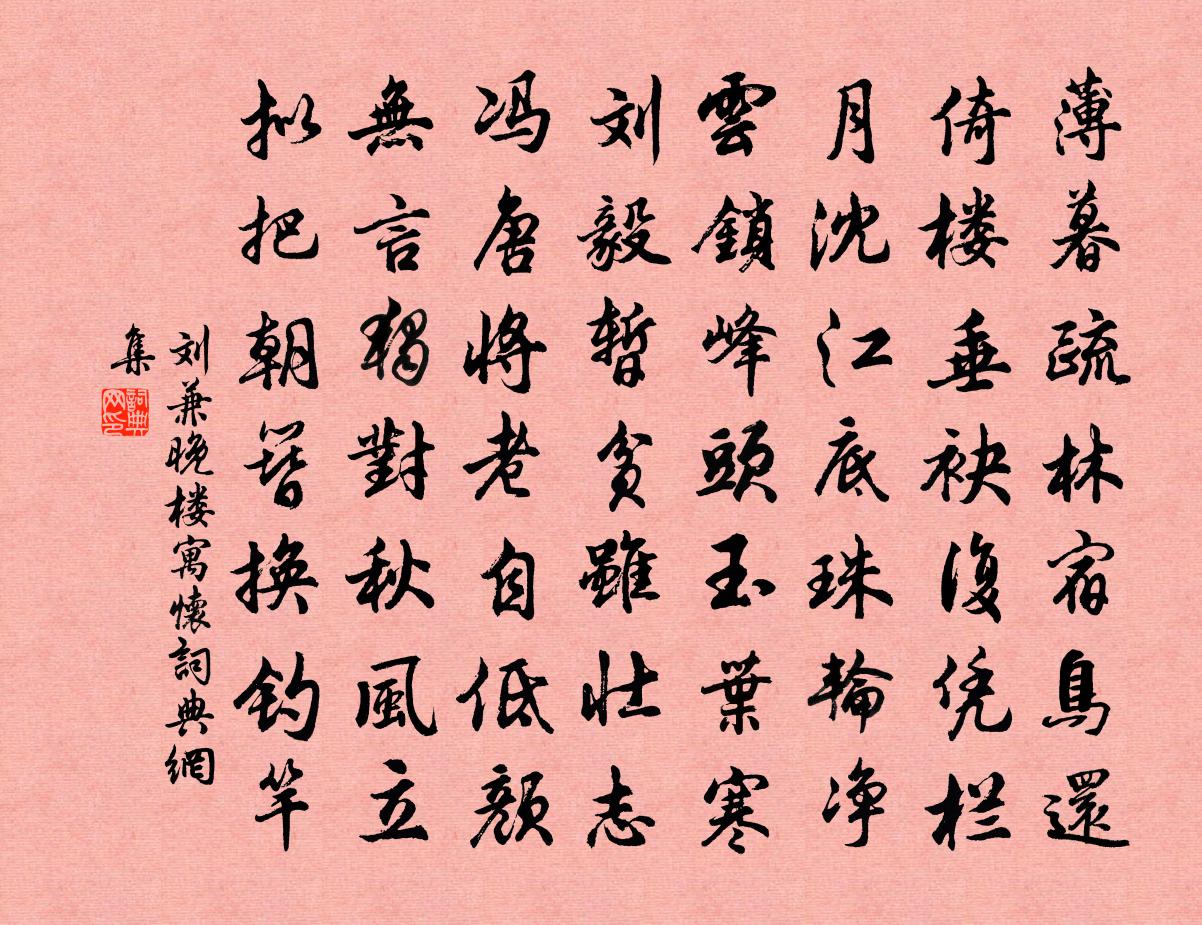 薄暮疏林宿鳥還
倚楼垂袂復凭栏
月沈江底珠輪净
雲鎖峰頭玉葉寒
刘毅暫貧雖壮志
冯唐将老自低颜
無言獨對秋風立
拟把朝簪換钓竿
刘兼晚楼寓懷詞典網
集
詞典网印